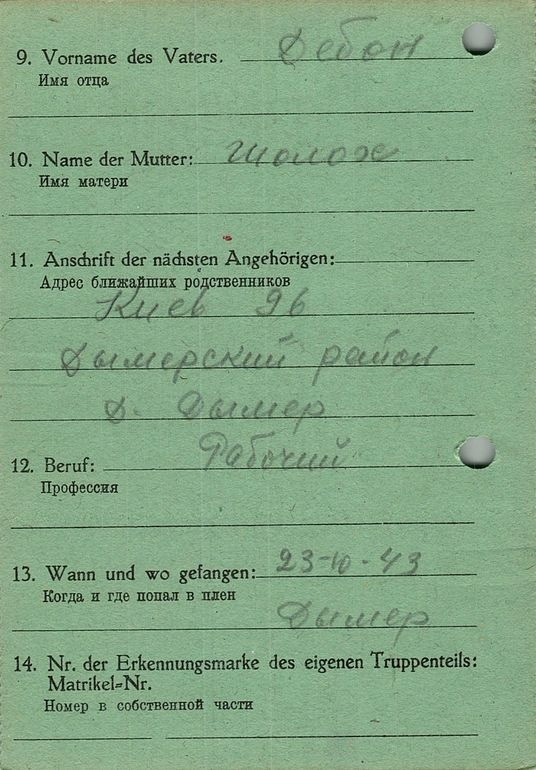 9. Vorname des Vaters. Дебон
Имя отца
10. Name der Mutter: Шолох
Имя матери
11. Anschrift der nächsten Angehörigen:
Адрес ближайших родственников
Киев 96
Дымерский район
д. Дымер
12. Beruf: Рабочий
Профессия
13. Wann und wo gefangen: 23-10-43
Когда и где попал в плен
Дымер
14. Nr. der Erkennungsmarke des eigenen Truppenteils:
Matrikel=Nr.
Номер в собственной части